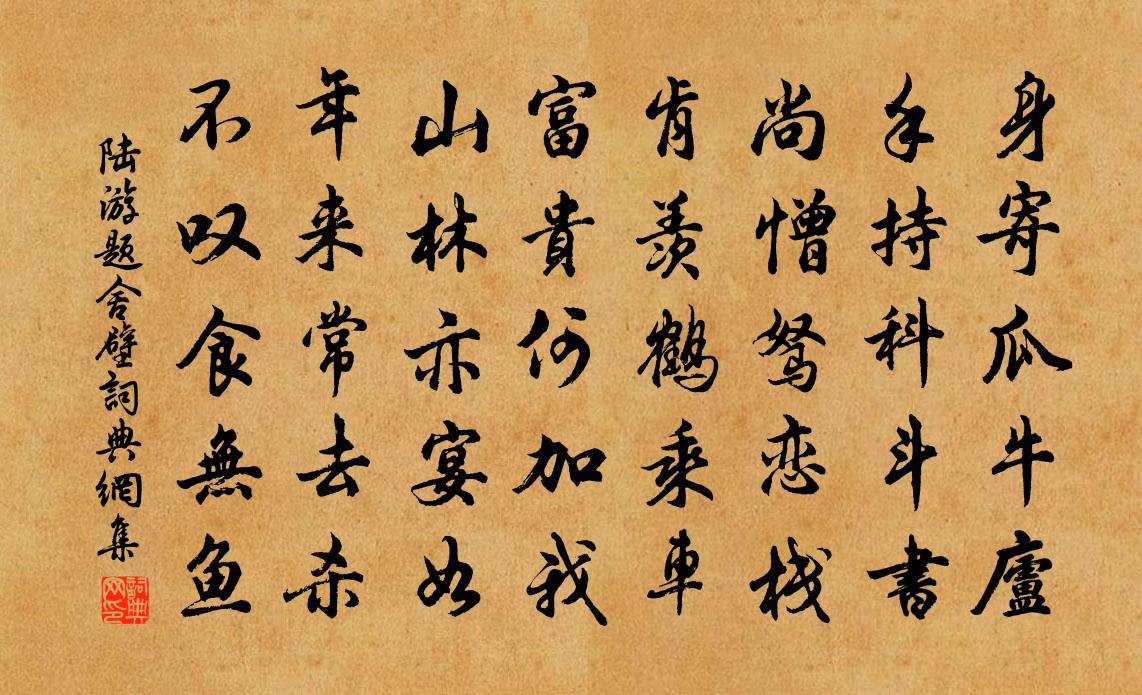 身寄瓜牛廬
手持科斗書
尚憎駑恋栈
肯羨鶴乘車
富貴何加我
山林亦宴如
年来常去杀
不叹食無鱼
陆游题舍壁詞典網集
詞典网印